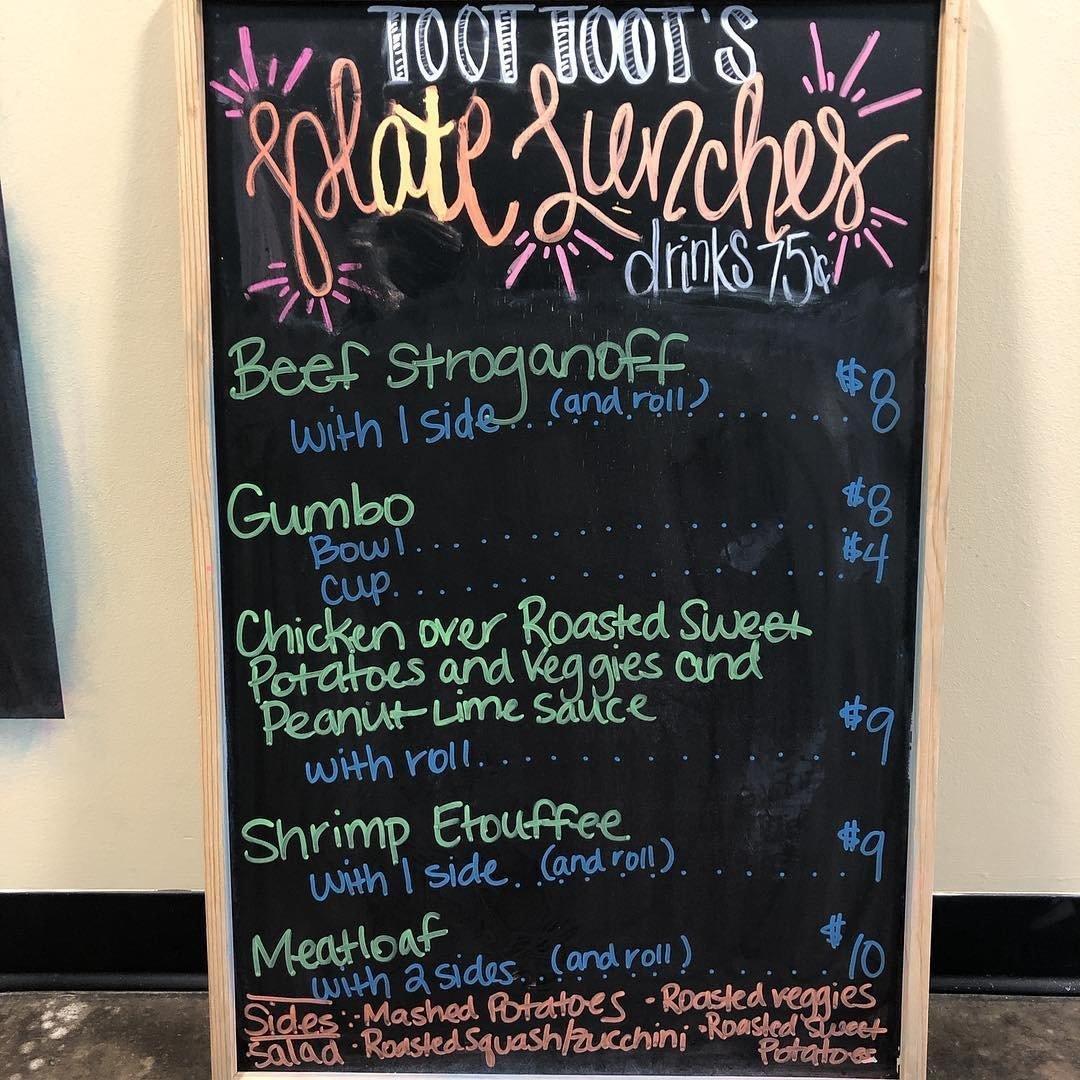 TOOT TOOT'S
Plate Lunches
drinks 75¢
Beef Stroganoff
with 1 side (and roll) ........ $8
Gumbo
Bowl ................ $8
Cup ................ $4
Chicken over Roasted Sweet
Potatoes and Veggies and
Peanut-Lime Sauce
with roll ............... $9
Shrimp Etouffee
with 1 side (and roll) ........ $9
Meatloaf
with 2 sides (and roll) ....... $10
Sides: · Mashed Potatoes · Roasted veggies
Salad · Roasted Squash/Zucchini · Roasted Sweet
Potatoes